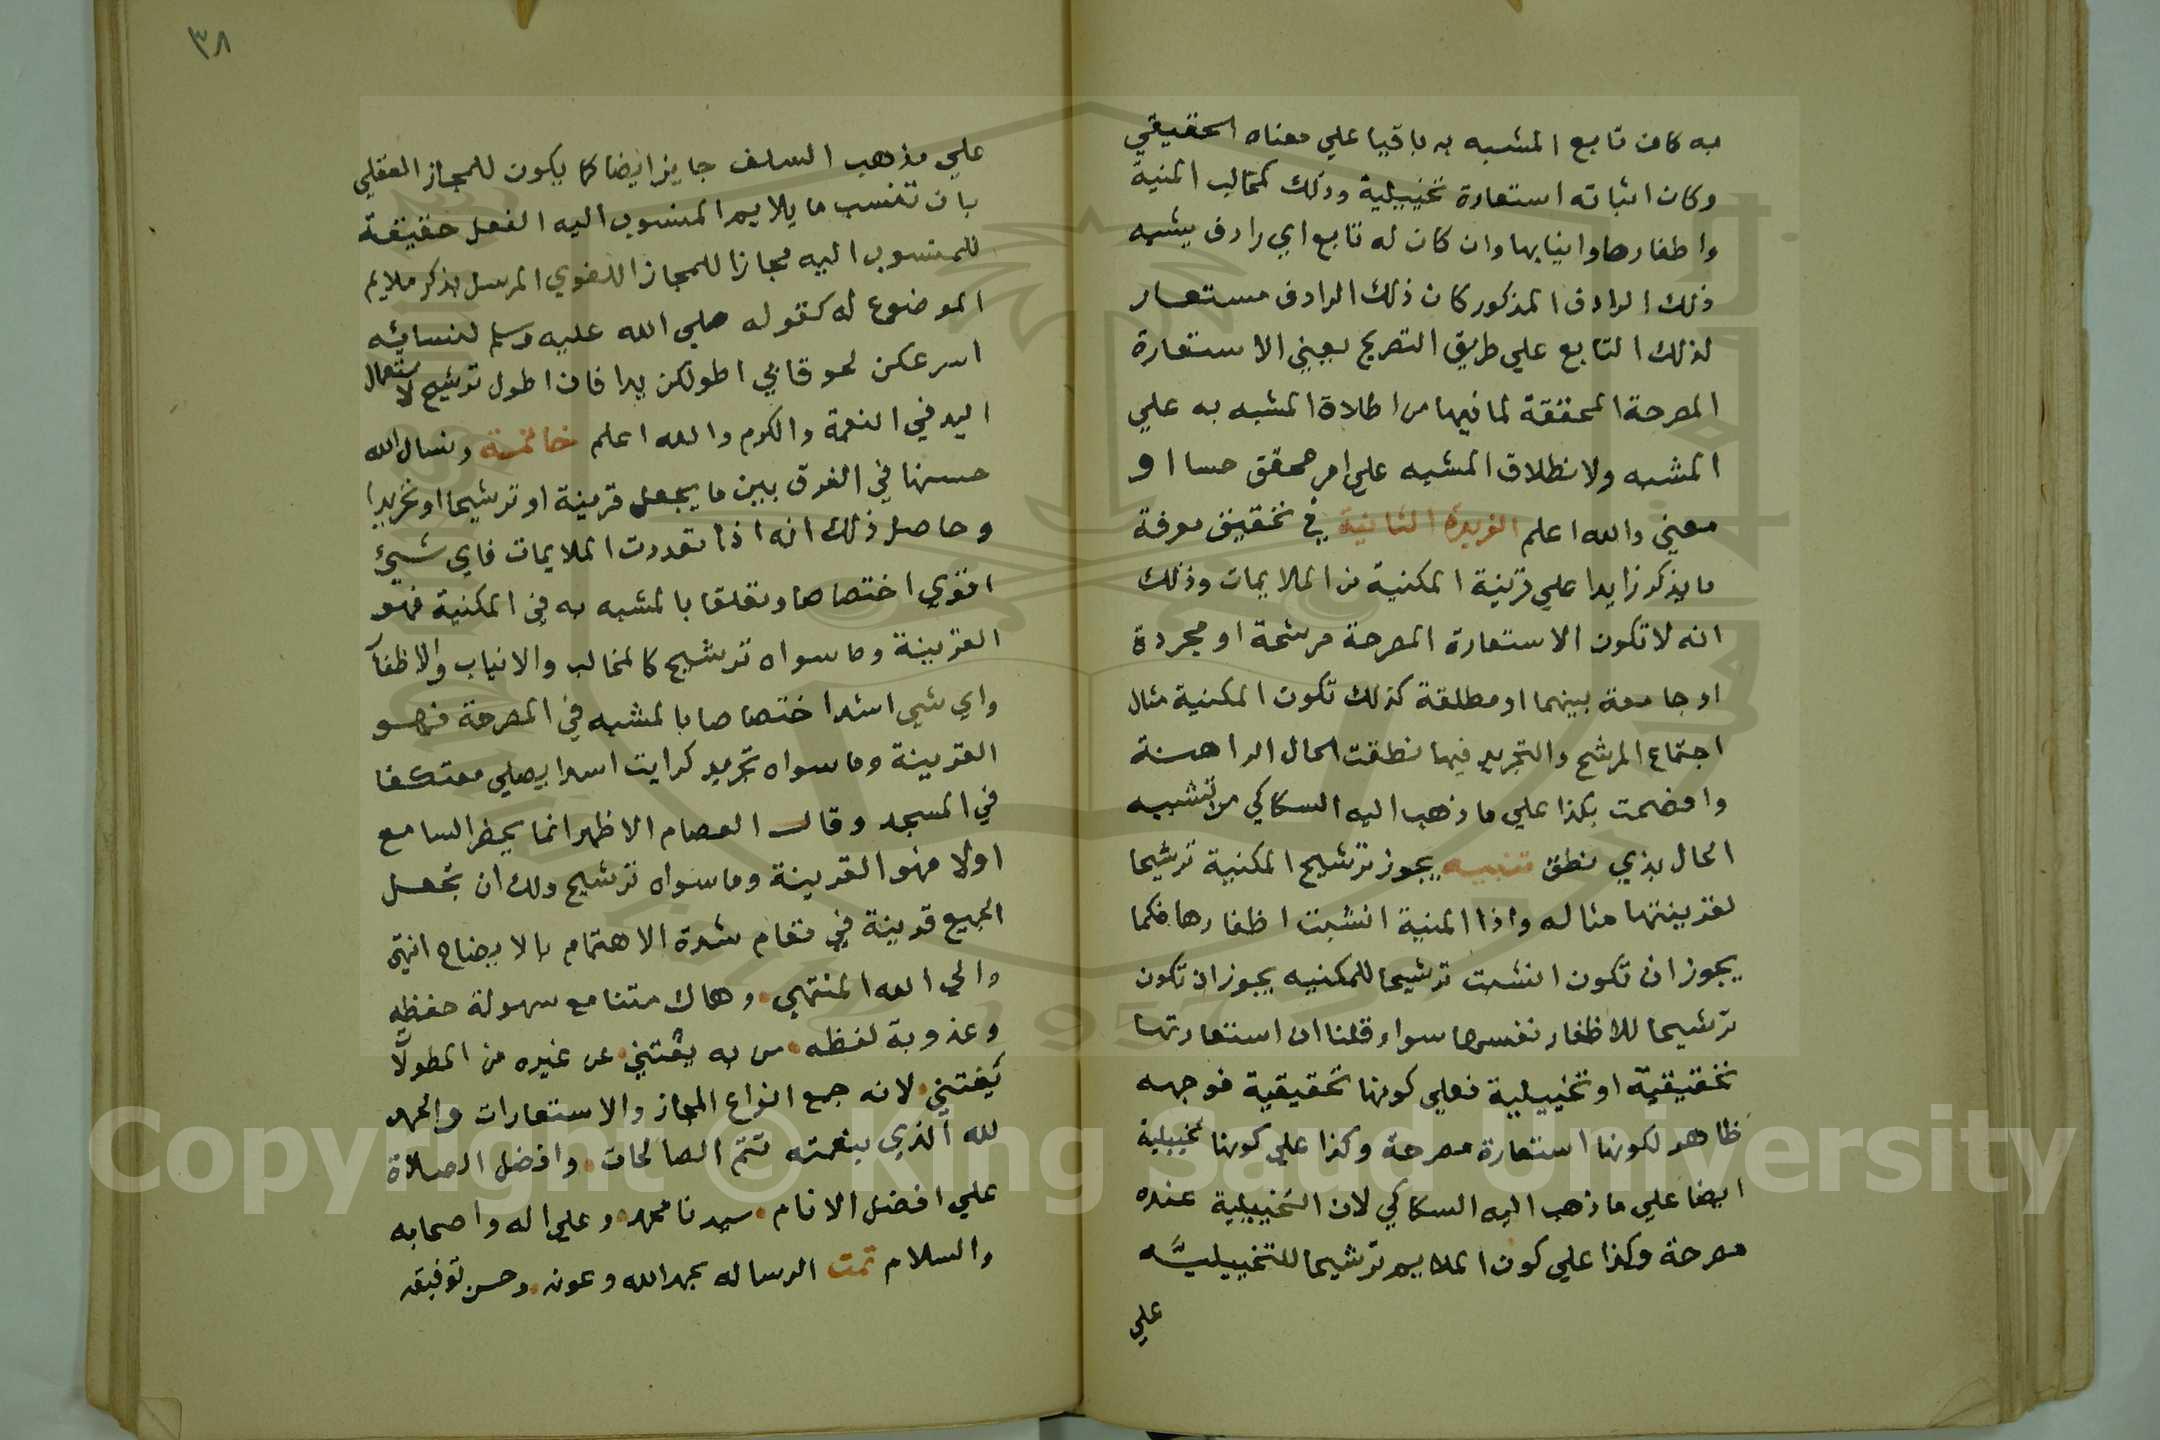 به كان تابع المشبه به باقيا علي معناه الحقيقي
وكان اثباته استعارة تخييلية وذلك كمخالب المنية
واظفارها وانيابها وان كان له تابع اي رادف يشبه
ذلك الرادف المذكور كان ذلك الرادف مستعار
لذلك التابع علي طريق التصريح يعني الاستعارة
المصرحة المحققة لما فيها من اطلاق المشبه به علي
المشبه ولانطلاق المشبه علي امر محقق حسا او
معني والله اعلم الفريدة الثانية في تحقيق معرفة
ما يذكر زايدا علي قرينة المكنية من الملايمات وذلك
انه لا تكون الاستعارة المصرحة مرشحة او مجردة
او جامعة بينهما او مطلقة كذلك تكون المكنية مثال
اجتماع المرشح والتجريد فيها نطقت الحال الراهنة
وافضحت بكذا علي ما ذهب اليه السكاكي من تشبيه
الحال بذي نطق تنبيه يجوز ترشيح المكنية ترشيحا
لقرينتها مثاله واذا المنية انشبت اظفارها فكما
يجوز ان تكون انشبت ترشيحا للمكنيه يجوز ان تكون
ترشيحا للاظفار نفسها سواء قلنا ان استعارتها
تحقيقية او تخييلية فعلي كونها تحقيقية فوجهه
ظاهر لكونها استعارة مصرحة وكذا علي كونها تخييلية
ايضا علي ما ذهب اليه السكاكي لان التخييلية عنده
مصرحة وكذا علي كون الملايم ترشيحا للتخييليه
علي
٣٨
علي مذهب السلف جايز ايضا كما يكون للمجاز العقلي
بان تنسب ما يلايم المنسوب اليه الفعل حقيقة
للمنسوب اليه مجازا للمجاز اللغوي المرسل بذكر ملايم
الموضوع له كقوله صلي الله عليه وسلم لنسائه
اسرعكن لحوقا بي اطولكن يدا فان اطول ترشيح لاستعمال
اليد في النعمة والكرم والله اعلم خاتمة ونسال الله
حسنها في الفرق بين ما يجعل قرينة او ترشيحا او تجريدا
وحاصل ذلك انه اذا تعددت الملايمات فاي شيئ
اقوي اختصاصا وتعلقا بالمشبه به في المكنية فهو
القرينة وما سواه ترشيح كالمخالب والانياب والاظفا
واي شي اشد اختصاصا بالمشبه في المصرحة فهو
القرينة وما سواه تجريد كرايت اسدا يصلي معتكفا
في المسجد وقال العصام الاظهر انما يحضر السامع
اولا فهو القرينة وما سواه ترشيح ولك ان تجعل
الجميع قرينة في مقام شدة الاهتمام بالايضاح انتهي
والي الله المنتهي وهاك متنا مع سهولة حفظه
وعذوبة لفظه من به يعتني عن غيره من المطولا
يغتني لانه جمع انواع المجاز والاستعارات والحمد
لله الذي بنعمته تتم الصالحات وافضل الصلاة
علي افضل الانام سيدنا محمد وعلي اله واصحابه
والسلام تمت الرساله بحمد الله وعونه وحسن توفيقه
Copyright © King Saud University
1957